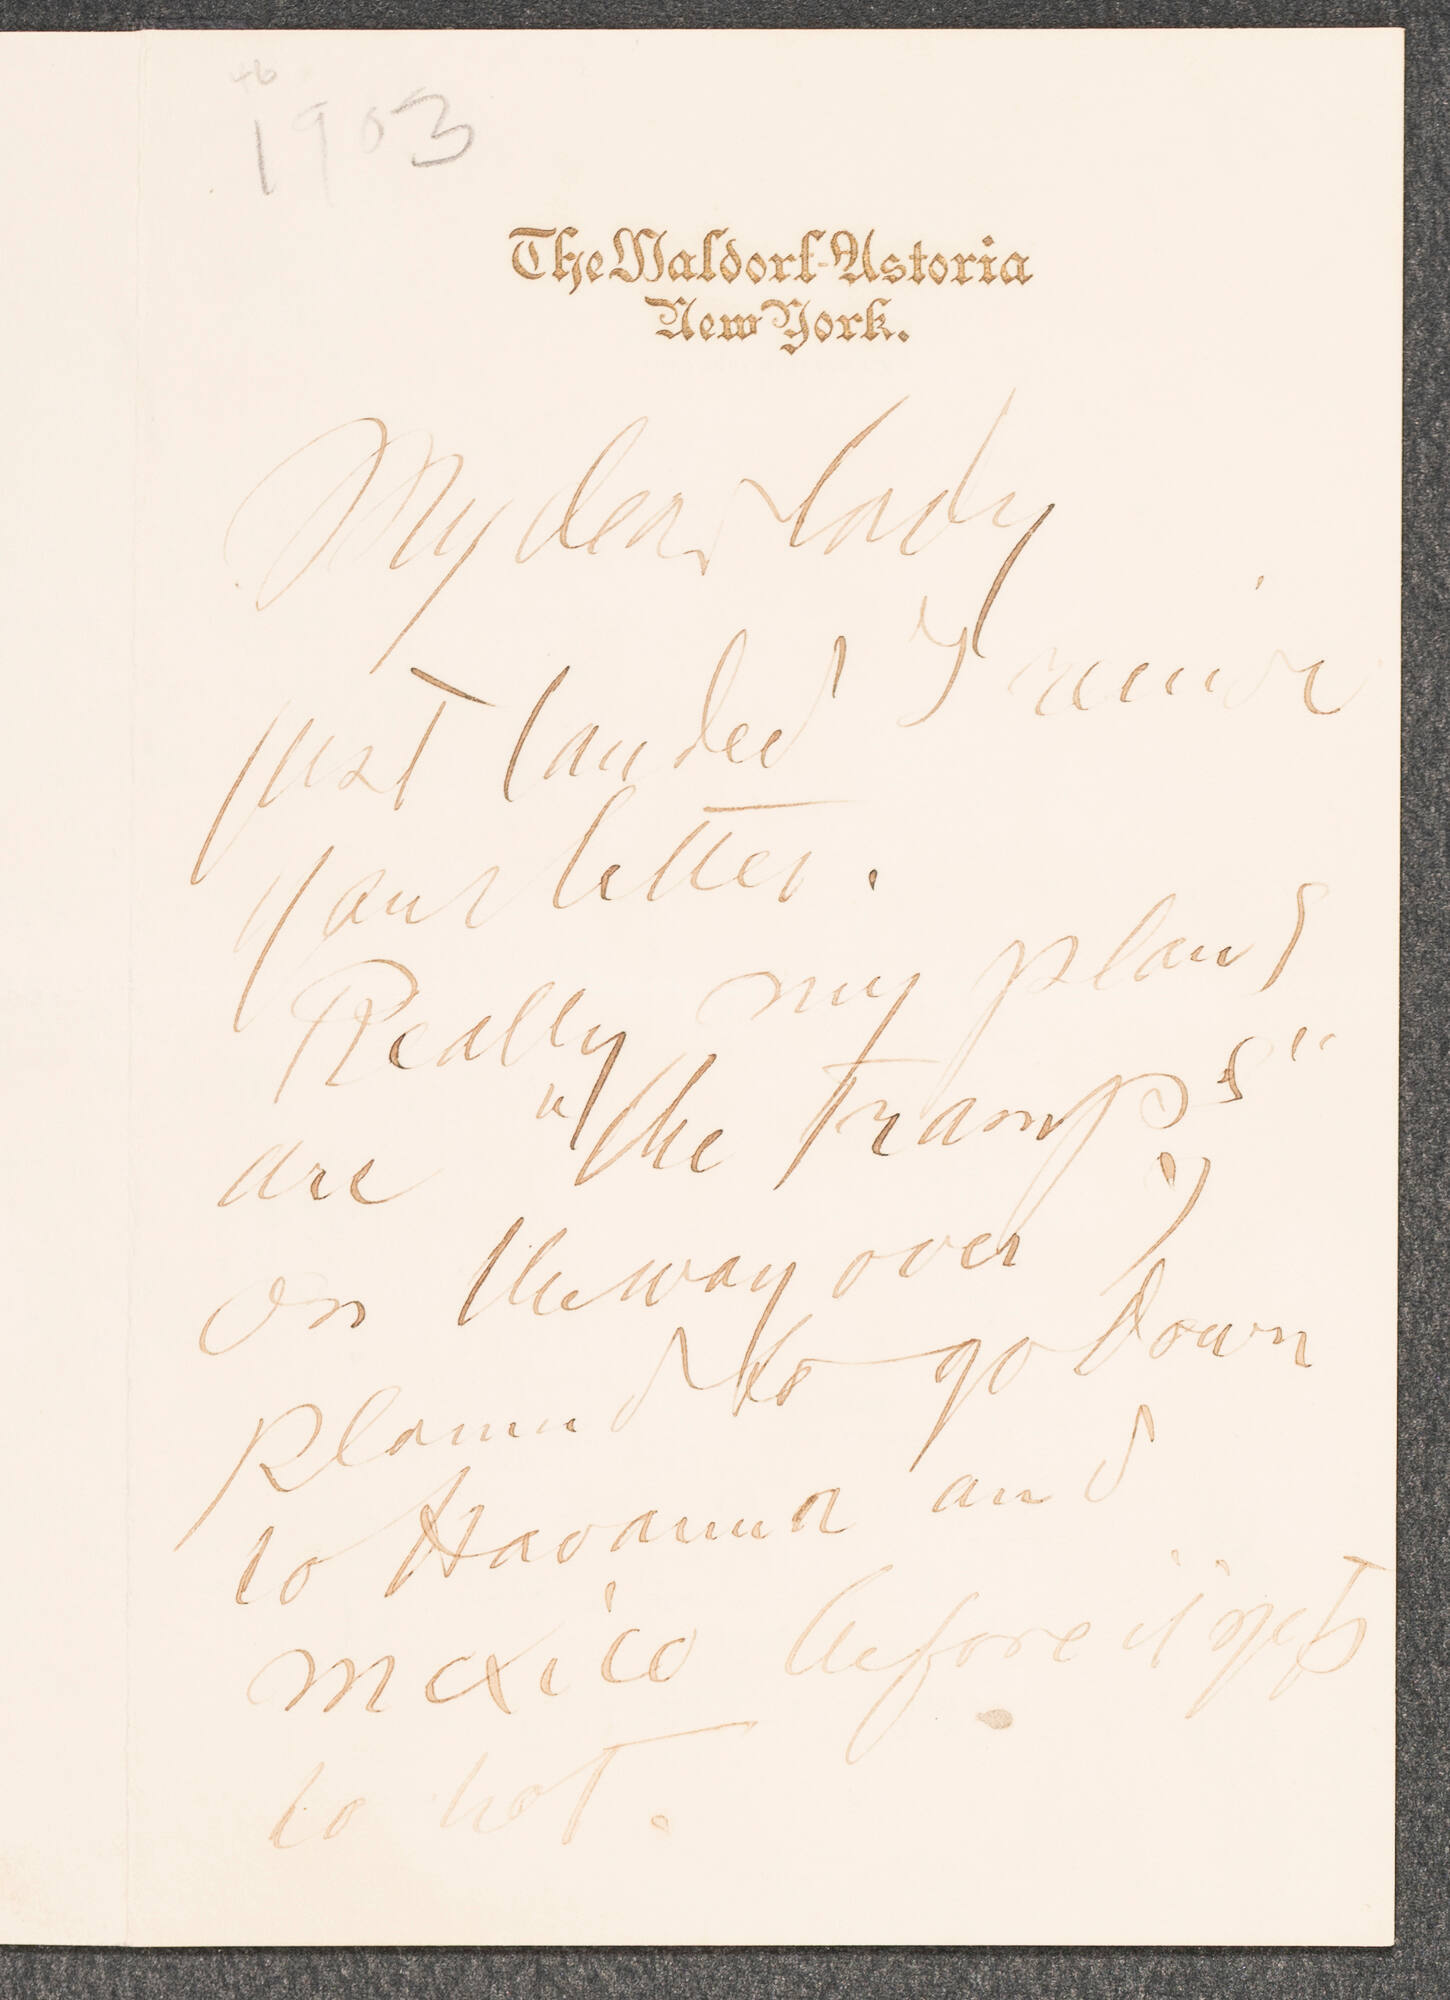 1903
The Waldorf-Astoria
New York.
My dear Lady
just landed I receive
your letter.
Really my plans
are "the tramps"
on the way over I
planned to go down
to Havanna and
mexico before it gets
to hot.